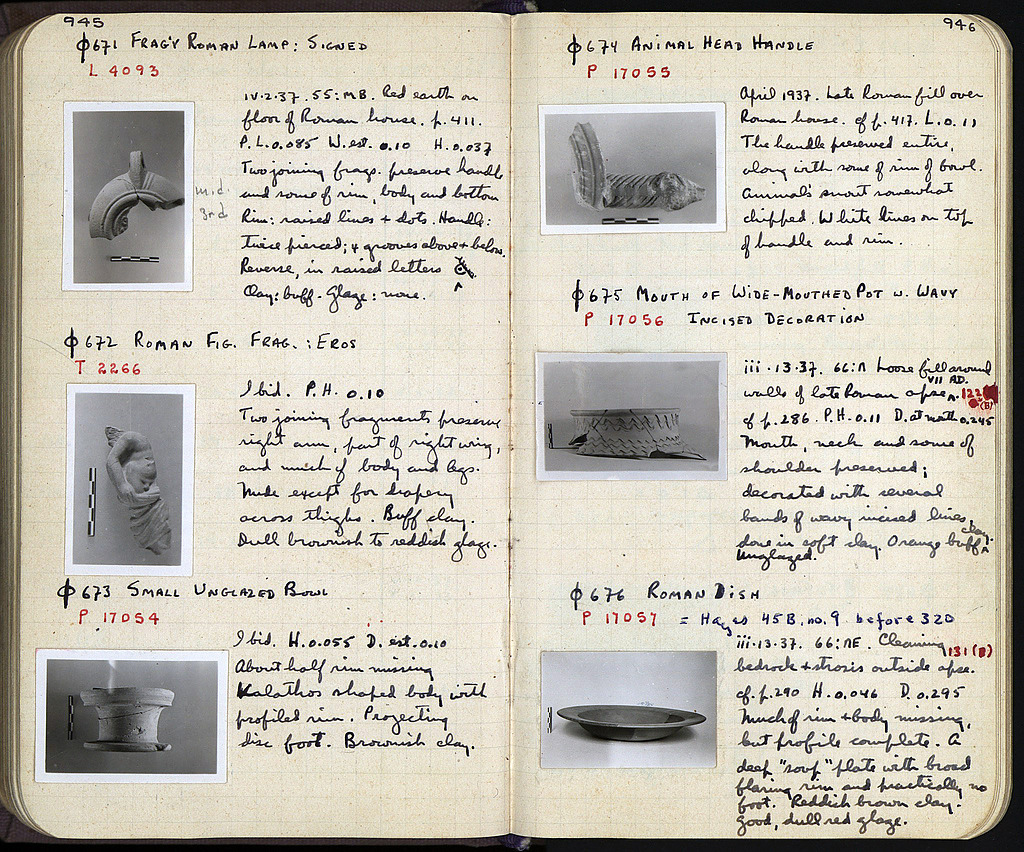 945
Φ671 FRAG'Y ROMAN LAMP: SIGNED
L 4093
iv.2.37. 55:MB. Red earth on
floor of Roman house. p. 411.
P.L. 0.085 W. est. 0.10 H. 0.037
Two joining frags. preserve handle
and some of rim, body and bottom
Rim: raised lines + dots. Handle:
twice pierced; 4 grooves above + below.
Reverse, in raised letters
Clay: buff. Glaze: none.
mid.
3rd
Φ672 ROMAN FIG. FRAG.: EROS
T 2266
Ibid. P.H. 0.10
Two joining fragments preserve
right arm, part of right wing,
and much of body and legs.
Nude except for drapery
across thighs. Buff clay.
Dull brownish to reddish glaze.
Φ673 SMALL UNGLAZED BOWL
P 17054
Ibid. H. 0.055 D. est. 0.10
About half rim missing
Kalathos shaped body with
profiled rim. Projecting
disc foot. Brownish clay.
946
Φ674 ANIMAL HEAD HANDLE
P 17055
April 1937. Late Roman fill over
Roman house. cf p. 417. L. 0.11
The handle preserved entire,
along with some of rim of bowl.
Animal's snout somewhat
chipped. White lines on top
of handle and rim.
Φ675 MOUTH OF WIDE-MOUTHED POT W. WAVY
P 17056 INCISED DECORATION
iii.13.37. 66:Π Loose fill around
walls of late Roman apse VII AD. 122 (B)
cf p. 286. P.H. 0.11 D. at mouth 0.245
Mouth, neck and some of
shoulder preserved;
decorated with several
bands of wavy incised lines,
done in soft clay. Orange buff clay.
Unglazed.
Φ676 ROMAN DISH
P 17057 = Hayes 45B, no. 9 before 320
iii.13.37. 66:ΠE. Cleaning 131 (B)
bedrock + strosis outside apse.
cf. p. 290 H. 0.046 D. 0.295
Much of rim + body missing,
but profile complete. A
deep "soup" plate with broad
flaring rim and practically no
foot. Reddish brown clay.
Good, dull red glaze.